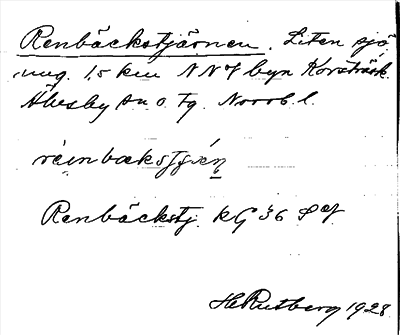 Renbäckstjärnen. Liten sjö
ung. 1,5 km NNV byn Korsträsk
Älvsby sn o. tg. Norrb. l.
Renbäckstj. KG 36 S
H Rutberg 1928